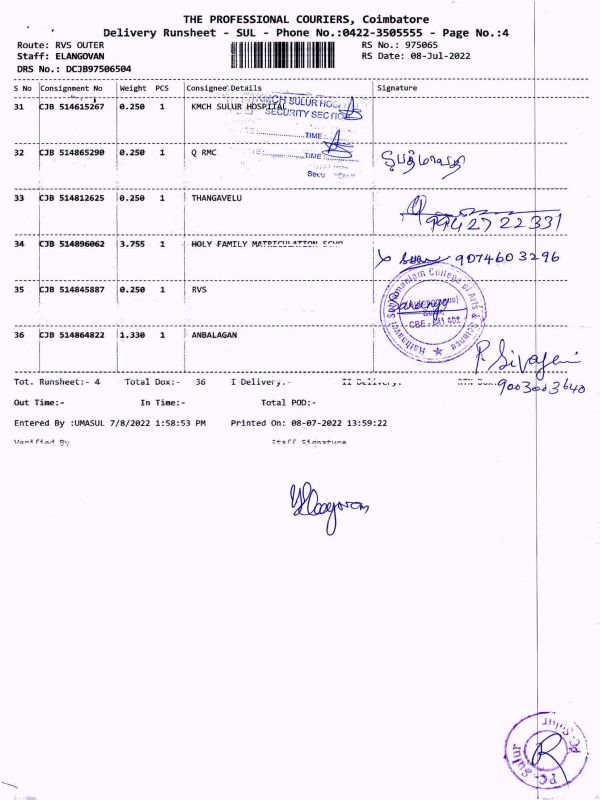 THE PROFESSIONAL COURIERS, Coimbatore
Delivery Runsheet - SUL - Phone No.:0422-3505555 - Page No.:4
Route: RVS OUTER RS No.: 975065
Staff: ELANGOVAN RS Date: 08-Jul-2022
DRS No.: DCJB97506504
S No Consignment No Weight PCS Consignee Details Signature
31 CJB 514615267 0.250 1 KMCH SULUR HOSPITAL
KMCH SULUR HOSPITAL
SECURITY SECTION
TIME
32 CJB 514865290 0.250 1 Q RMC
TIME
33 CJB 514812625 0.250 1 THANGAVELU
9942722331
34 CJB 514896062 3.755 1 HOLY FAMILY MATRICULATION
9074603296
35 CJB 514845887 0.250 1 RVS
Kathanayaki Subramaniam College of Arts & Science
36 CJB 514864822 1.330 1 ANBALAGAN
P. Sivagami
9003003640
Tot. Runsheet:- 4 Total Dox:- 36 I Delivery:- II Delivery:
Out Time:- In Time:- Total POD:-
Entered By :UMASUL 7/8/2022 1:58:53 PM Printed On: 08-07-2022 13:59:22
Verified By Staff Signature
PC-Sulur
PC-Sulur